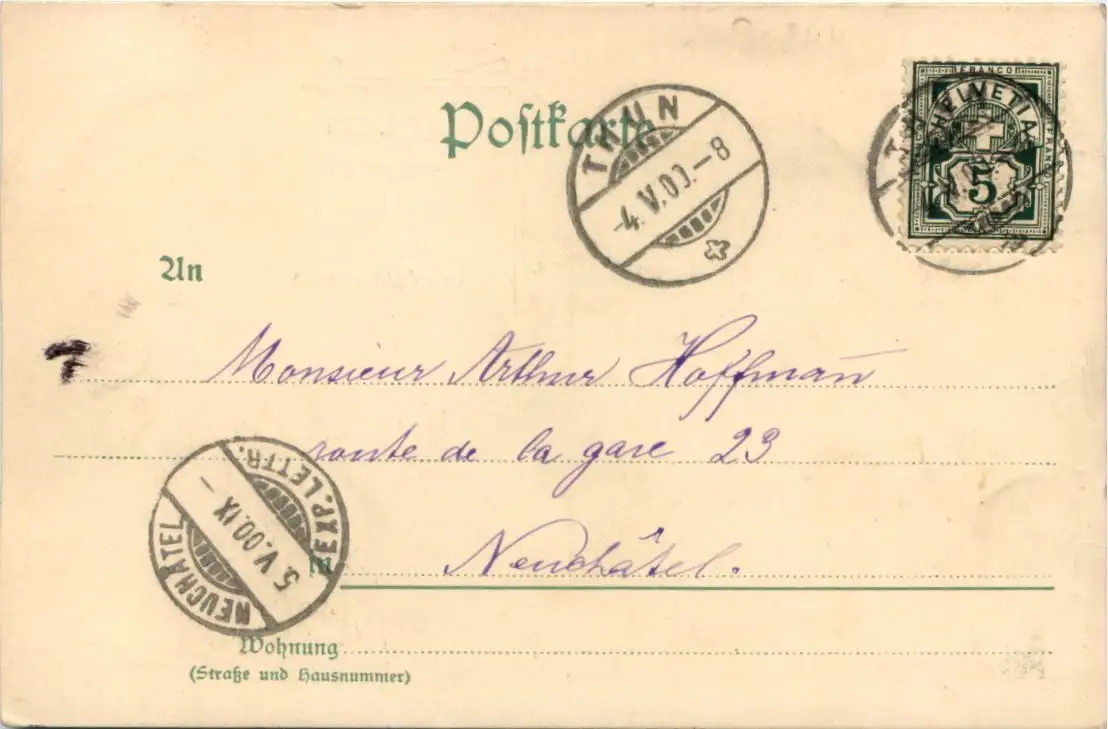 Postkarte
THUN
-4.V.00.-8
FRANCO
HELVETIA
FRANCO
5
An
Monsieur Arthur Hoffmann
route de la gare 23
Neuchâtel.
in
NEUCHÂTEL
5.V.00.IX-
EXP. LETTR.
Wohnung
(Straße und Hausnummer)